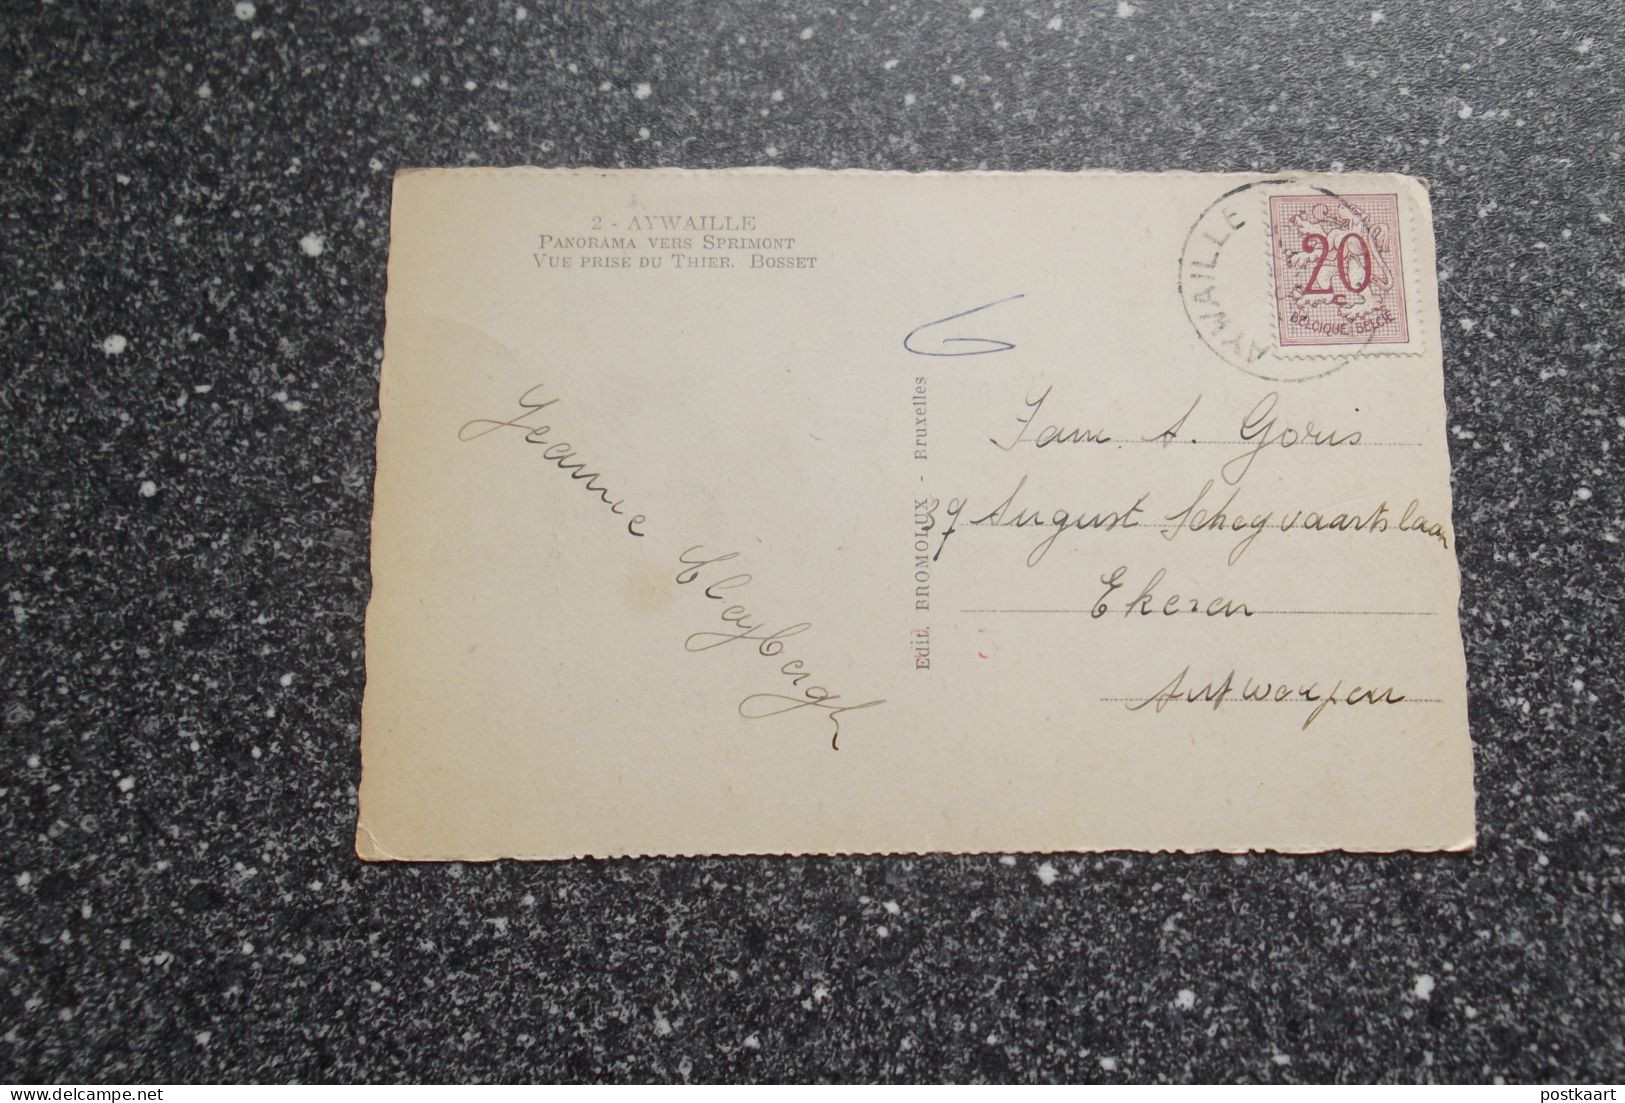 2 - AYWAILLE
PANORAMA VERS SPRIMONT
VUE PRISE DU THIER. BOSSET
AYWAILLE
20
C
BELGIQUE-BELGIE
Edit. BROMOLUX - Bruxelles
Jeanne Cleybergh
Fam. A. Goris
39 August Scheyvaartslaan
Ekeren
Antwerpen
delcampe.net
postkaart